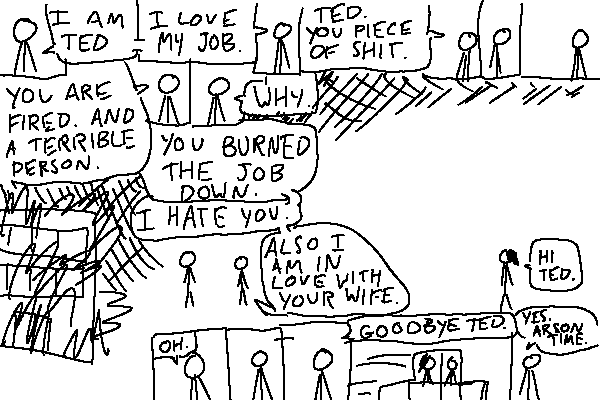 I AM
TED
I LOVE
MY JOB.
TED.
YOU PIECE
OF SHIT.
YOU ARE
FIRED. AND
A TERRIBLE
PERSON.
WHY.
YOU BURNED
THE JOB
DOWN.
I HATE YOU.
ALSO I
AM IN
LOVE WITH
YOUR WIFE.
OH.
HI
TED.
GOODBYE TED.
YES.
ARSON
TIME.